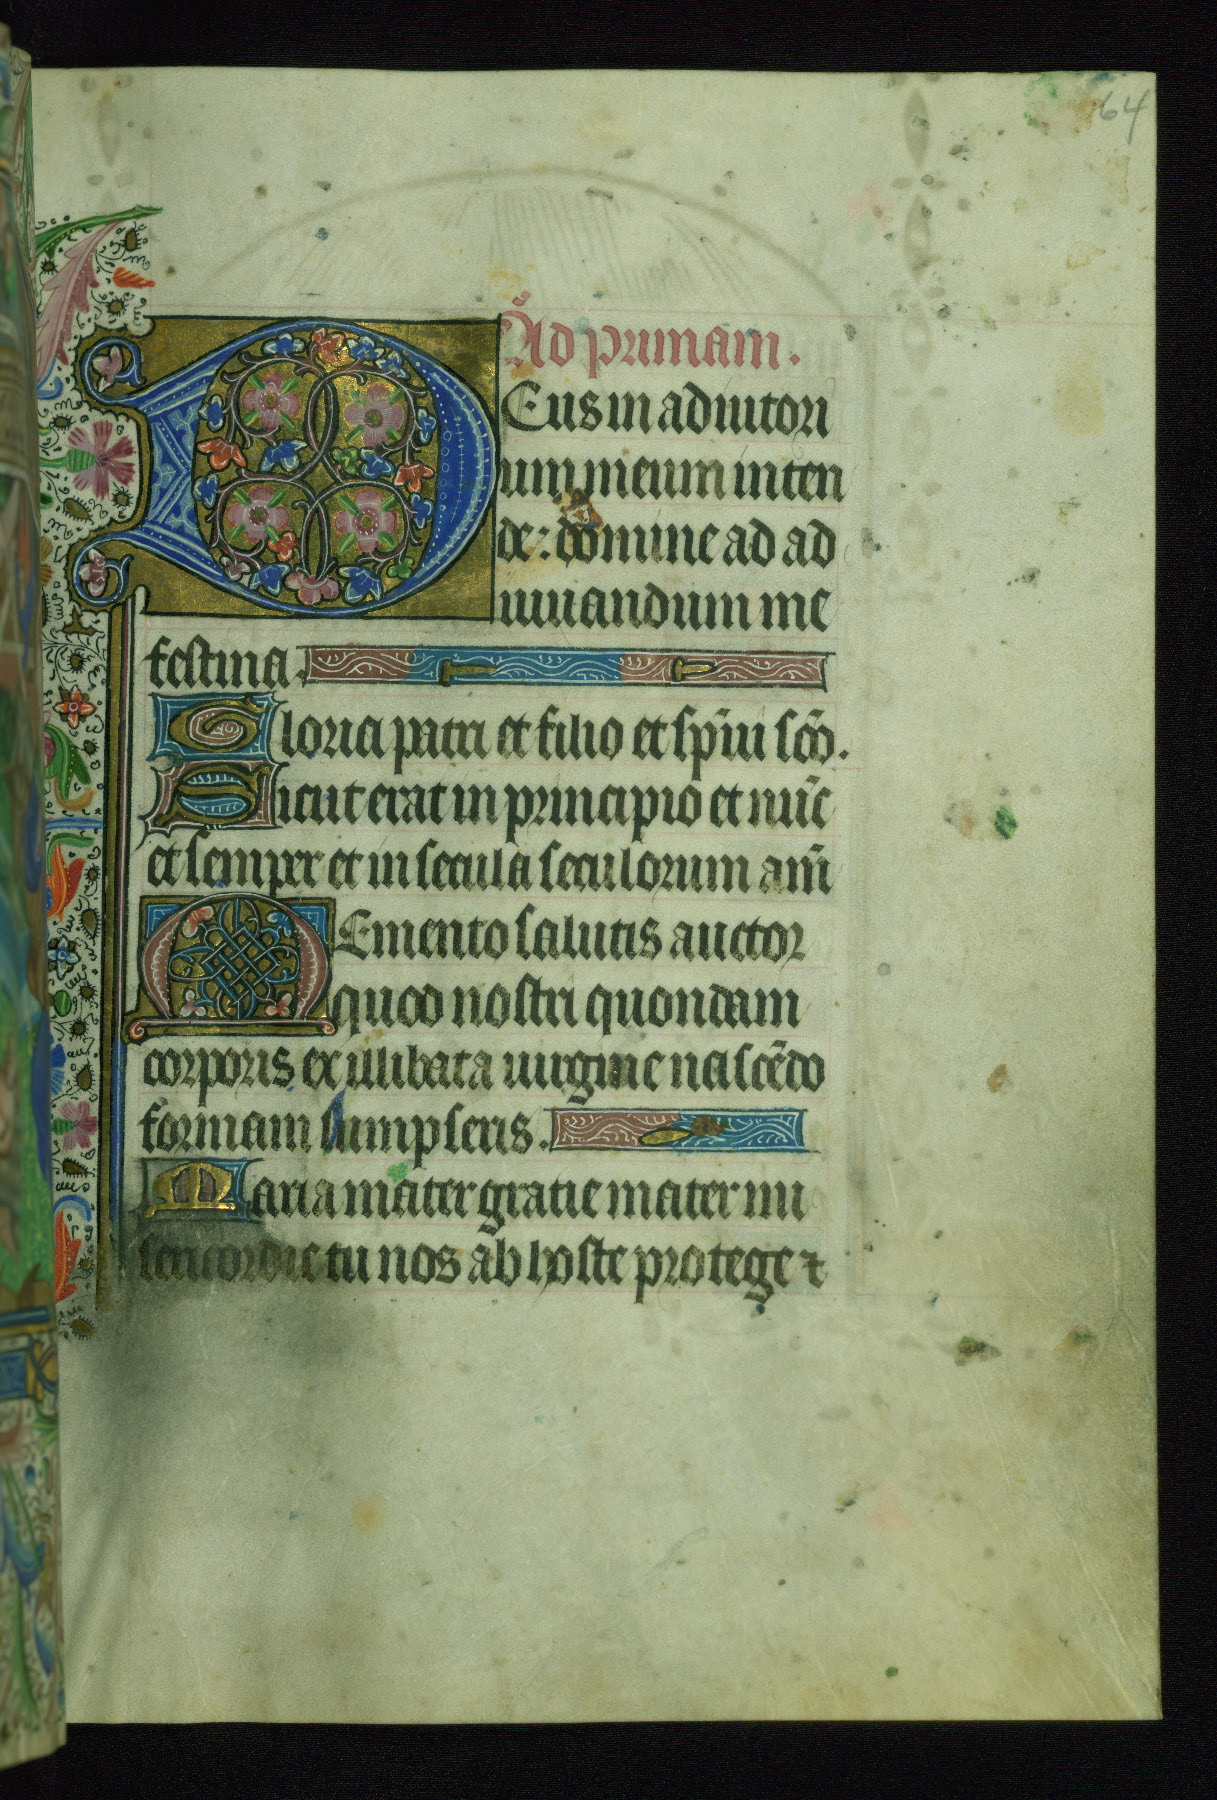 64
Ad primam.
Deus in adiutori
um meum inten
de: domine ad ad
iuuandum me
festina.
Gloria patri et filio et sp̄iu sc̄o.
Sicut erat in principio et nūc
et semper et in secula seculorum am̄
Memento salutis auctor
quod nostri quondam
corporis ex illibata uirgine nascēdo
formam sumpseris.
Maria mater gratie mater mi
sericordie tu nos ab hoste protege ⁊